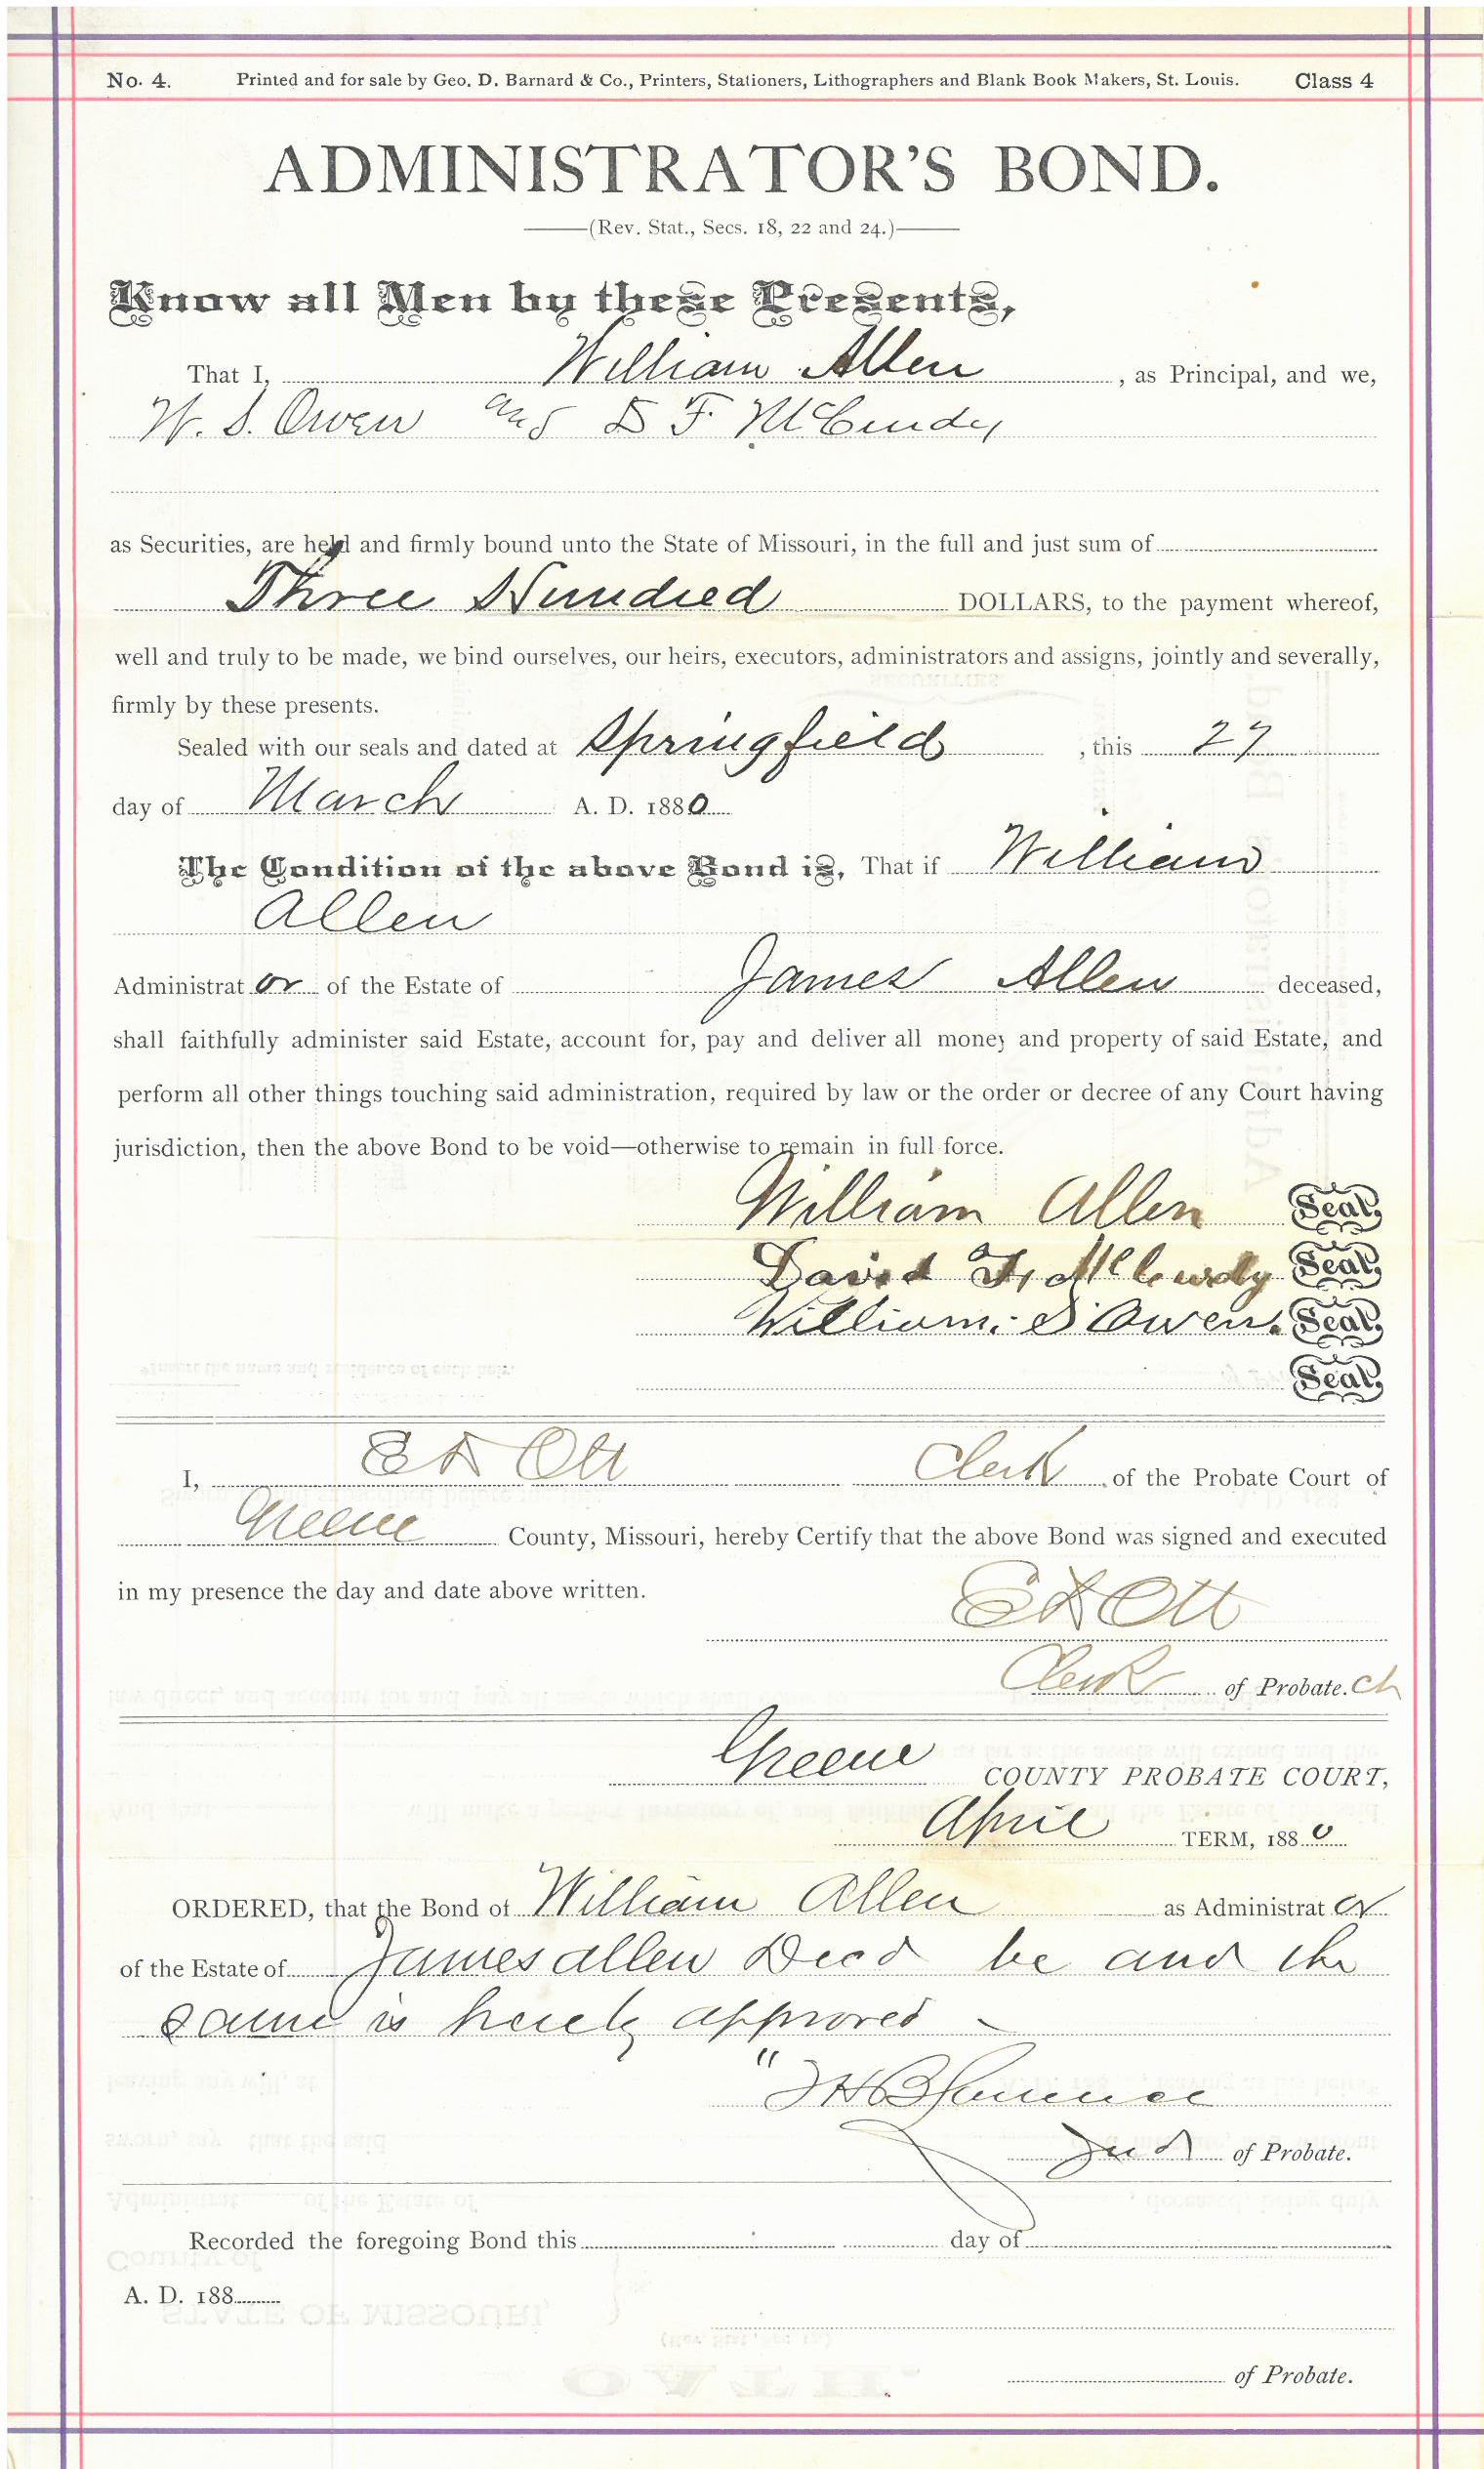 No. 4. Printed and for sale by Geo. D. Barnard & Co., Printers, Stationers, Lithographers and Blank Book Makers, St. Louis. Class 4
ADMINISTRATOR'S BOND.
(Rev. Stat., Secs. 18, 22 and 24.)
Know all Men by these Presents,
That I, William Allen, as Principal, and we,
W. S. Owen and D F McCurdy
as Securities, are held and firmly bound unto the State of Missouri, in the full and just sum of
Three Hundred DOLLARS, to the payment whereof,
well and truly to be made, we bind ourselves, our heirs, executors, administrators and assigns, jointly and severally,
firmly by these presents.
Sealed with our seals and dated at Springfield, this 27
day of March A. D. 1880
The Condition of the above Bond is, That if William
Allen
Administrator of the Estate of James Allen deceased,
shall faithfully administer said Estate, account for, pay and deliver all money and property of said Estate, and
perform all other things touching said administration, required by law or the order or decree of any Court having
jurisdiction, then the above Bond to be void—otherwise to remain in full force.
William Allen Seal,
David F, McCurdy Seal,
William. S Owen. Seal,
Seal,
I, E D Ott Clerk of the Probate Court of
Greene County, Missouri, hereby Certify that the above Bond was signed and executed
in my presence the day and date above written.
E D Ott
Clerk of Probate. Ct
Greene COUNTY PROBATE COURT,
April TERM, 1880
ORDERED, that the Bond of William Allen as Administrator
of the Estate of James allen Decd be and the
same is hereby approved
of Probate.
Recorded the foregoing Bond this day of
A. D. 188
of Probate.